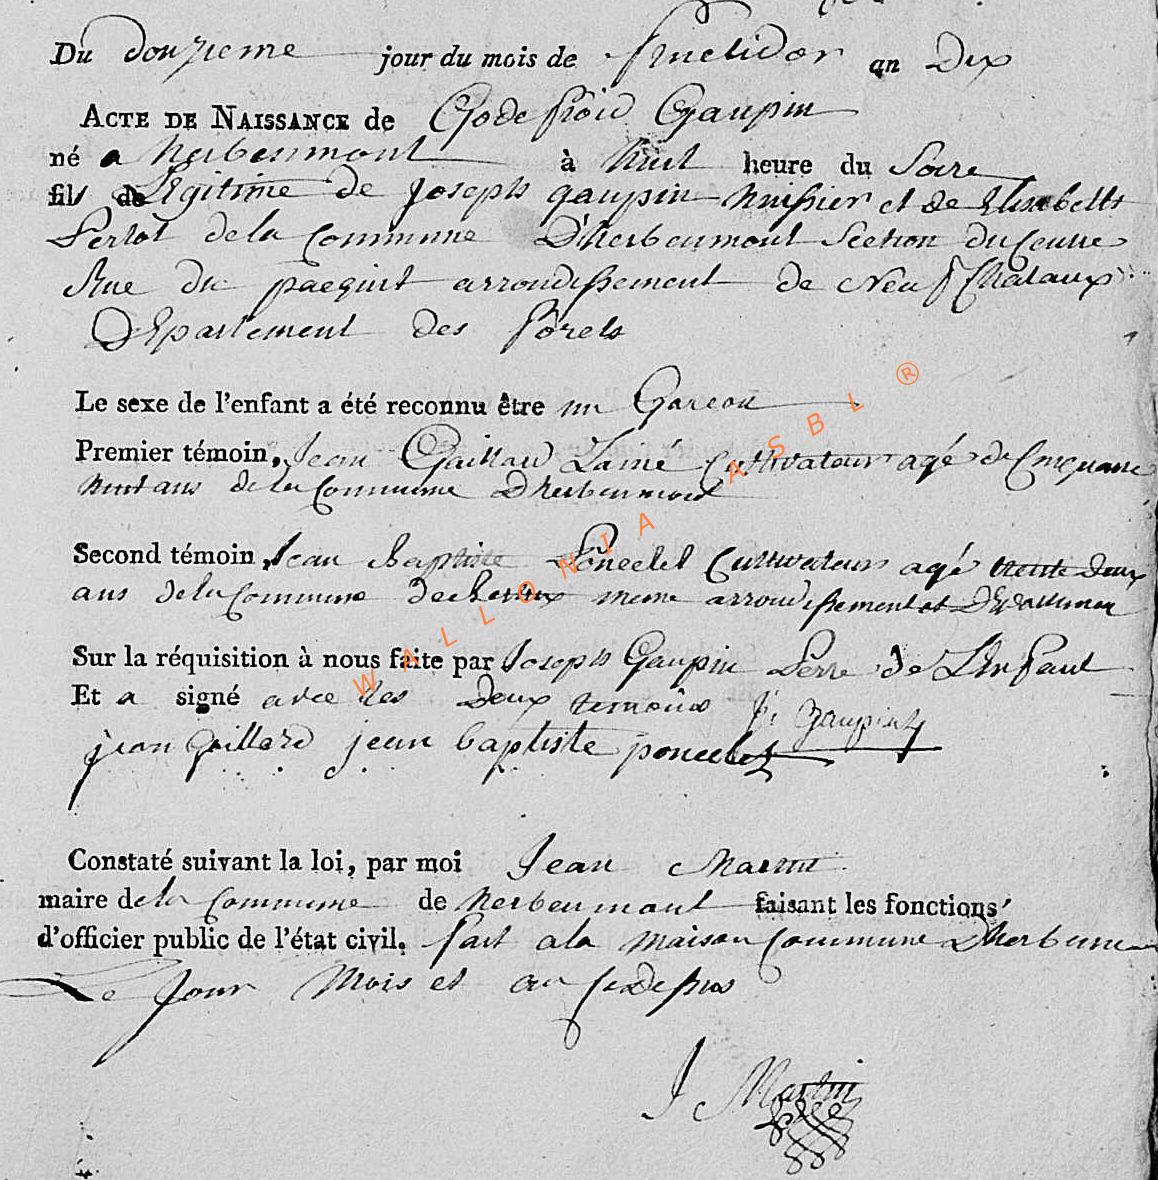 Du douzieme jour du mois de fructidor an Dix
ACTE DE NAISSANCE de Godefroid Gaupin
né a herbeumont à huit heure du Soire
fils de Légitime de joseph gaupin huissier et de Elisabeth
Pertot dela Commune D'herbeumont Section du Centre
Rue du paequit arrondissement de Neufchataux
Département des forets
Le sexe de l'enfant a été reconnu être un Garcon
Premier témoin, Jean Gaillard Lainé Cultivateur agé de Cinquante
huit ans de la Commune D'herbeumont
Second témoin, Jean Baptiste Poncelet Cultivateur agé trente deux
ans dela Commune de meme arrondissement et
Sur la réquisition à nous faite par Joseph Gaupin Perre de L'Enfant
Et a signé avec les Deux temoins J: Gaupin
jean Gaillard jean baptiste poncelet
Constaté suivant la loi, par moi Jean Martin
maire dela Commune de herbeumont faisant les fonctions
d'officier public de l'état civil. fait ala maison Commune D'herbeumont
Le Jour Mois et an Cidessus
J Martin
WALLONIA ASBL ®